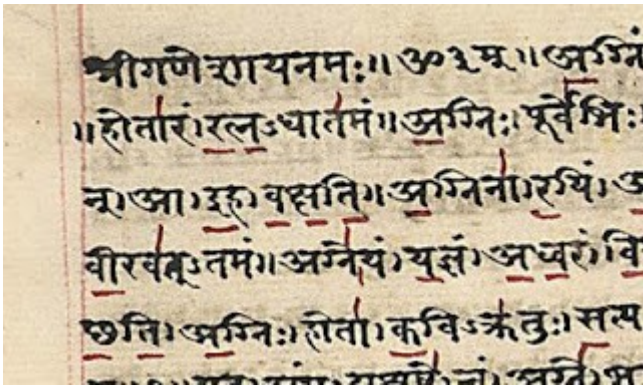 श्रीगणेशायनमः॥ॐ३म्॥अ॒ग्निं
॥होता॑रं।र॒त्न॒ऽधात॑मं॥अ॒ग्निः।पूर्वे॑भिः
न्।आ।इ॒ह।व॒क्ष॒ति॒॥अ॒ग्निना॑।र॒यिं।
वी॒रव॑त्ऽतमं॥अग्ने॑।यं।य॒ज्ञं।अ॒ध्व॒रं।वि
च्छ॒ति॒।अ॒ग्निः।होता॑।क॒विऽक्र॑तुः।स॒त्य